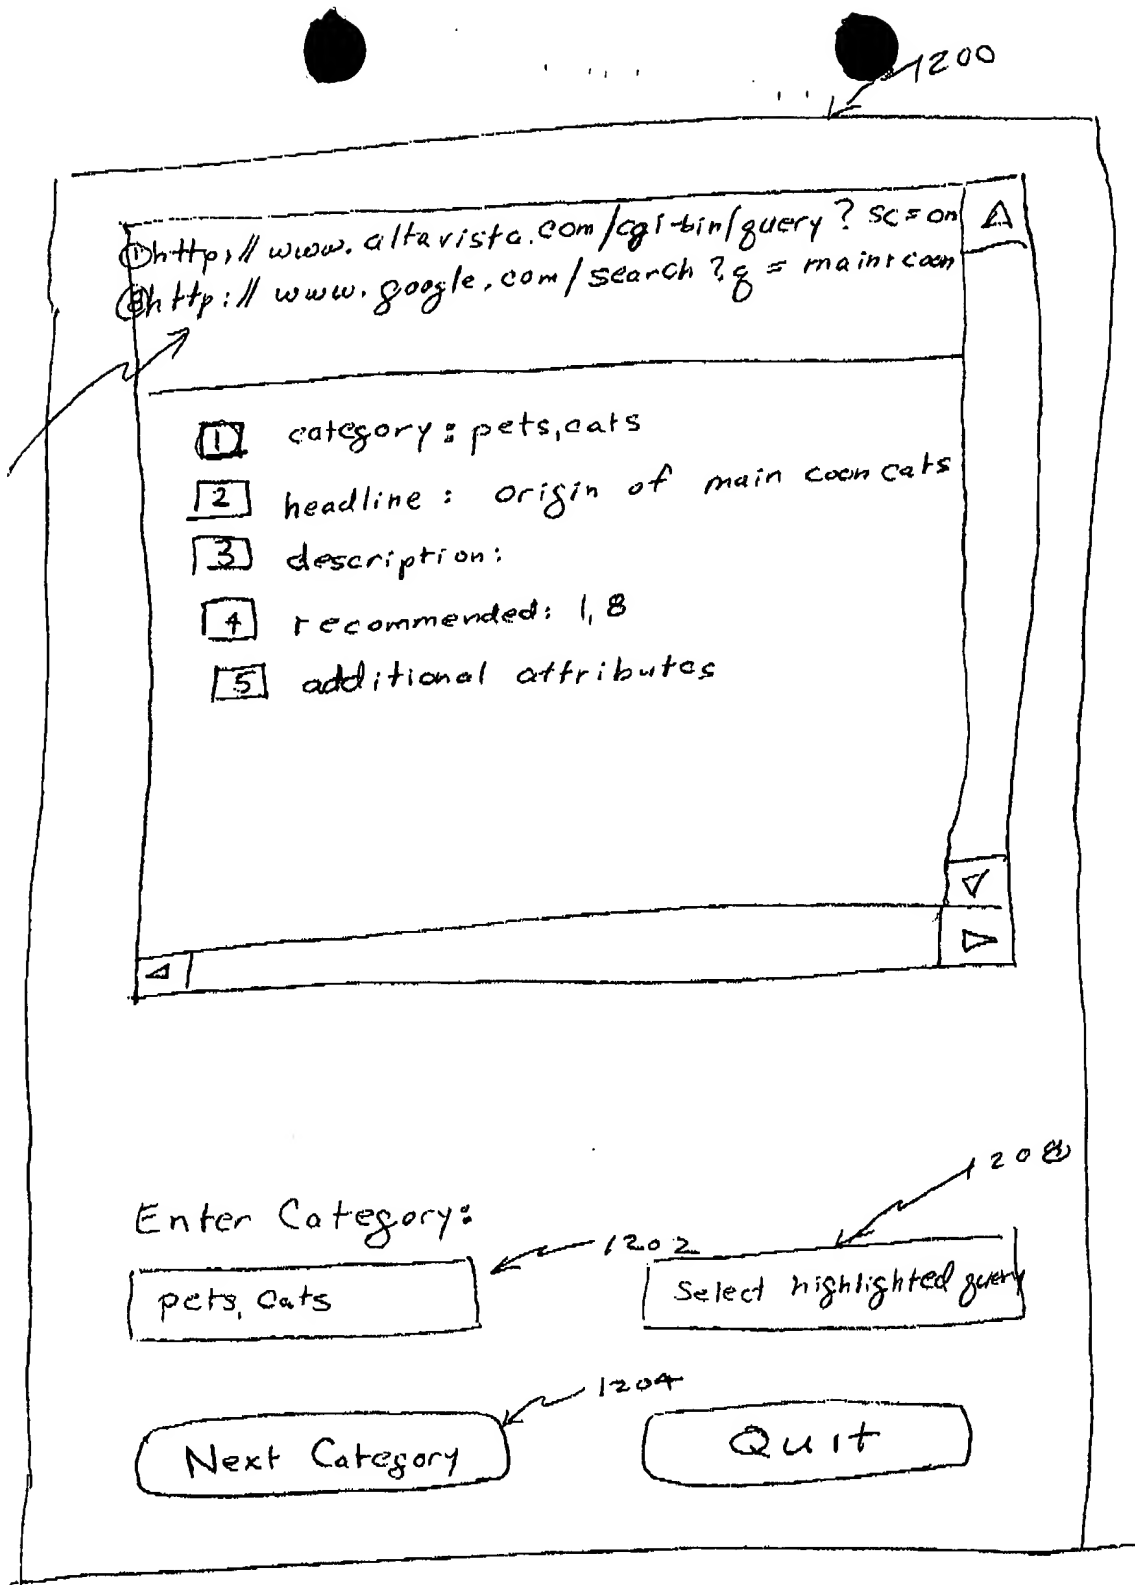 1200
① http://www.altavista.com/cgi-bin/query?sc=on
② http://www.google.com/search?q=maine coon
1 category: pets,cats
2 headline: origin of main coon cats
3 description:
4 recommended: 1,8
5 additional attributes
1208
Enter Category:
1202
pets, cats
Select highlighted query
1204
Next Category
Quit